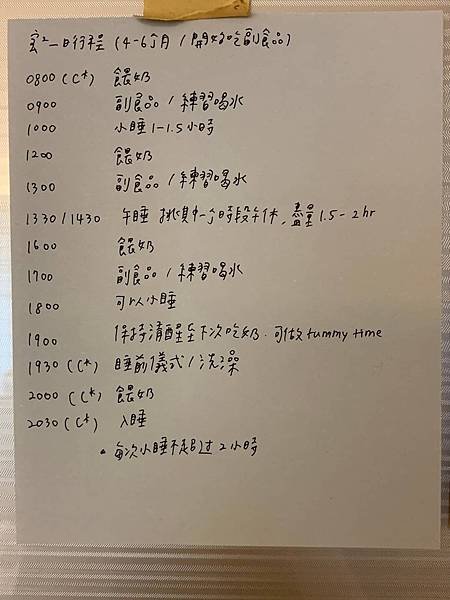 宏²一日行程 (4-6個月 / 開始吃副食品)
0800 (C*) 餵奶
0900 副食品 / 練習喝水
1000 小睡 1-1.5小時
1200 餵奶
1300 副食品 / 練習喝水
1330 / 1430 午睡 挑其中一個時段午休, 盡量 1.5-2hr
1600 餵奶
1700 副食品 / 練習喝水
1800 可以小睡
1900 保持清醒至下次吃奶. 可做 tummy time
1930 (C*) 睡前儀式 / 洗澡
2000 (C*) 餵奶
2030 (C*) 入睡
• 每次小睡不超過 2小時